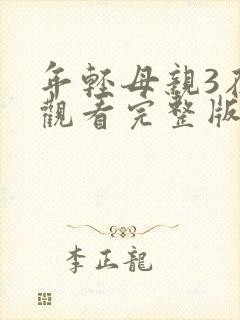 年輕母親3在
觀看完整版
李正龍